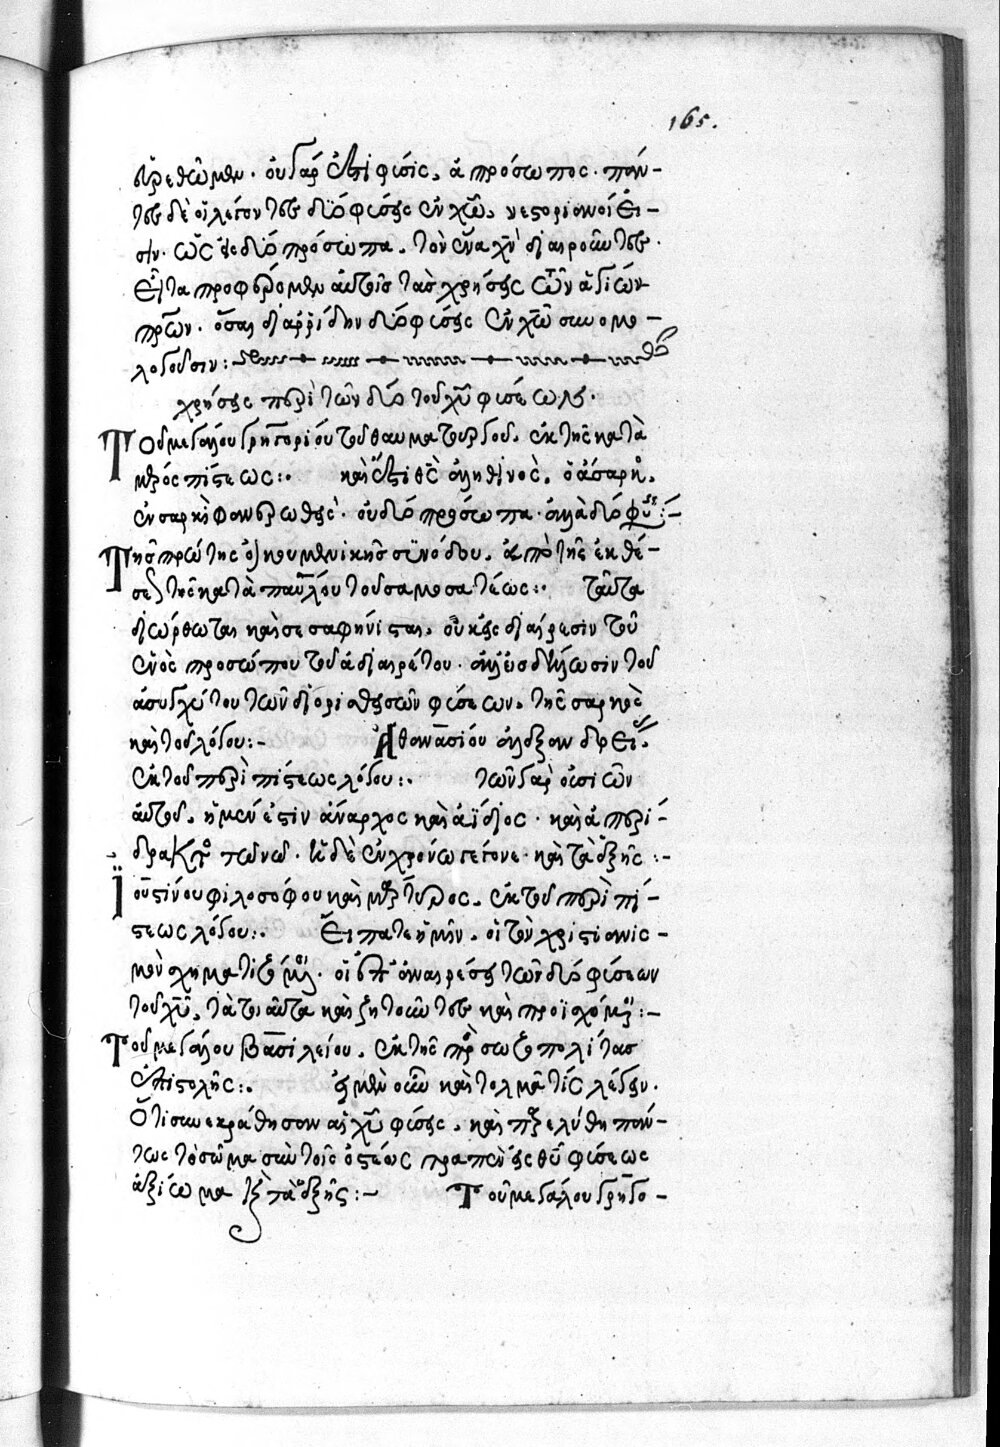 165.
εὑρεθῶμεν. οὐ γάρ ἐστι φύσις, ἀπρόσωπος. πάν-
τες δὲ οἱ λέγοντες δύο φύσεις ἐν χῶ, νεστοριανοί εἰ-
σίν. ὡς εἰς δύο πρόσωπα, τὸν ἕνα χν διαιροῦντες.
Εἶτα προφέρομεν αὐτοῖς τὰς χρήσεις τῶν ἁγίων
πρων. ὅσαι διαρρήδην δύο φύσεις ἐν χῶ συνομο-
λογοῦσιν:
χρήσεις περὶ τῶν δύο τοῦ χῦ φύσεων.
Τοῦ μεγάλου γρηγορίου τοῦ θαυματουργοῦ, ἐκ τῆς κατὰ
μέρος πίστεως:. καὶ ἔστι θς ἀληθινὸς, ὁ ἄσαρκος,
ἐν σαρκὶ φανερωθεὶς. οὐ δύο πρόσωπα. ἀλλὰ δύο φύσεις:-
Τῆς πρώτης οἰκουμενικῆς συνόδου, ἀπὸ τῆς ἐκθέ-
σεως τῆς κατὰ παύλου τοῦ σαμοσατέως:. ταῦτα
διώρθωται καὶ σεσαφήνισται, οὐκ εἰς διαίρεσιν τοῦ
ἑνὸς προσώπου τοῦ ἀδιαιρέτου. ἀλλ' εἰς δήλωσιν τοῦ
ἀσυγχύτου τῶν διορισθεισῶν φύσεων, τῆς σαρκὸς
καὶ τοῦ λόγου:- Ἀθανασίου ἀλεξανδρείας,
ἐκ τοῦ περὶ πίστεως λόγου:. τῶν γὰρ οὐσιῶν
αὐτοῦ, ἡ μέν ἐστιν ἄναρχος καὶ ἀΐδιος. καὶ ἀπερί-
γραπτος πάντων. ἡ δὲ ἐν χρόνω γέγονε. καὶ τὰ ἑξῆς:-
Ἰουστίνου φιλοσόφου καὶ μάρτυρος, ἐκ τοῦ περὶ πί-
στεως λόγου:. Εἴπατε ἡμῖν, οἱ τὸν χριστιανισ-
μὸν σχηματιζόμενοι. οἱ ἐπ' ἀναιρέσει τῶν δύο φύσεων
τοῦ χῦ, τὰ τοιαῦτα καὶ ζητοῦντες καὶ προϊσχόμενοι:-
Τοῦ μεγάλου βασιλείου, ἐκ τῆς πρὸς σωζοπολίτας
ἐπιστολῆς:. εἰ μὲν οὖν καὶ τολμᾶ τίς λέγειν.
Ὅτι συνεκράθησαν αἱ χῦ φύσεις, καὶ παρελύθη πάν-
τως τὸ σῶμα σὺν τοῖς ὀστέοις τραπὲν εἰς θῦ φύσεως
ἀξίωμα καὶ τὰ ἑξῆς:- Τοῦ μεγάλου γρηγο-